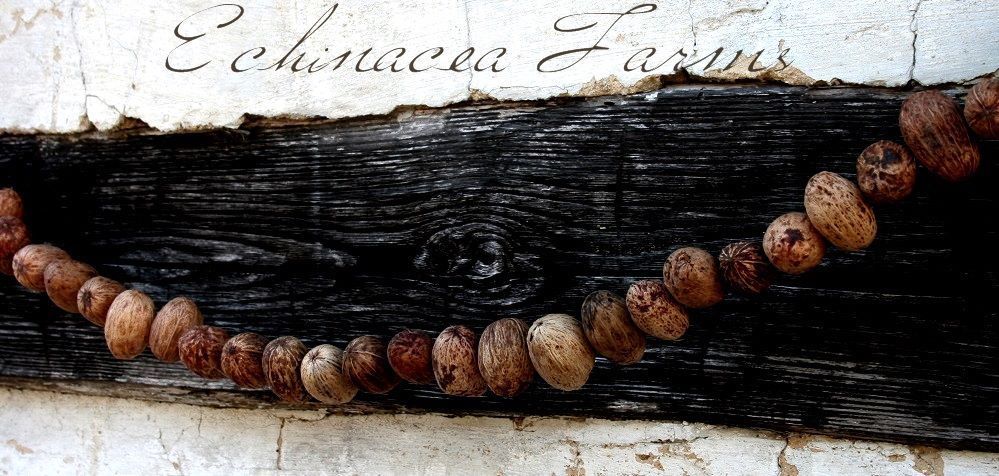 Echinacea Farms